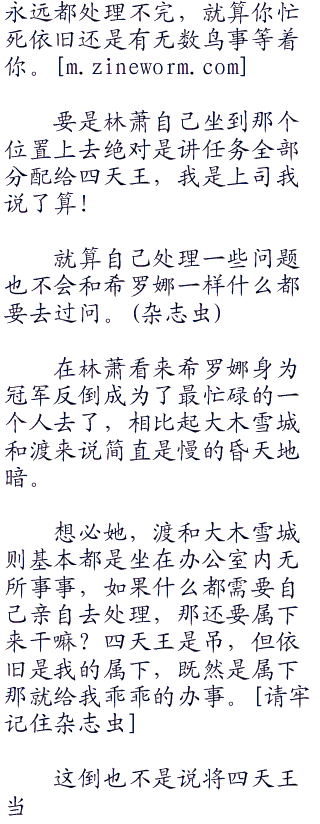 永远都处理不完，就算你忙
死依旧还是有无数鸟事等着
你。[m.zineworm.com]
要是林萧自己坐到那个
位置上去绝对是讲任务全部
分配给四天王，我是上司我
说了算！
就算自己处理一些问题
也不会和希罗娜一样什么都
要去过问。(杂志虫)
在林萧看来希罗娜身为
冠军反倒成为了最忙碌的一
个人去了，相比起大木雪城
和渡来说简直是慢的昏天地
暗。
想必她，渡和大木雪城
则基本都是坐在办公室内无
所事事，如果什么都需要自
己亲自去处理，那还要属下
来干嘛？四天王是吊，但依
旧是我的属下，既然是属下
那就给我乖乖的办事。[请牢
记住杂志虫]
这倒也不是说将四天王
当